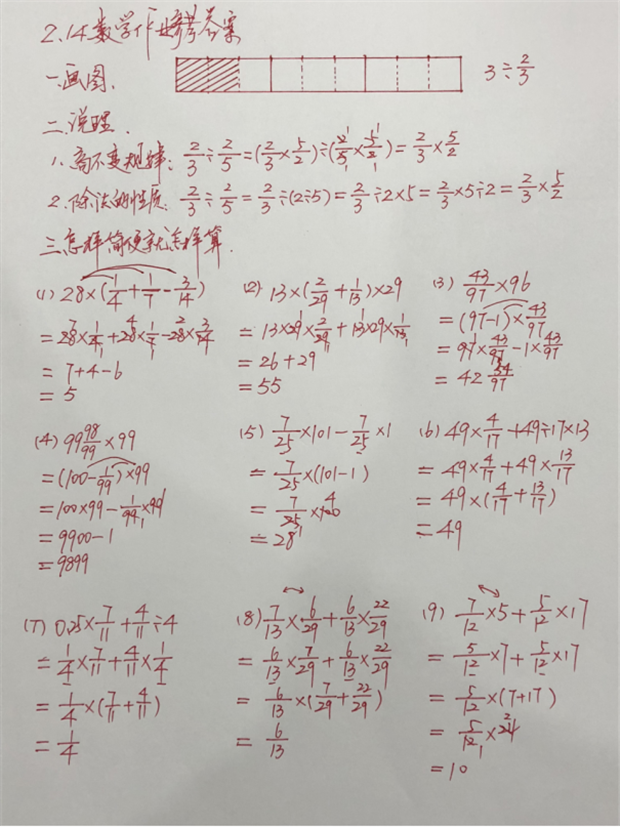 2.14数学作业参考答案
一.画图. 3÷2/3
二.说理.
1.商不变规律: 2/3÷2/5=(2/3×5/2)÷(2/5×5/2)=2/3×5/2
2.除法的性质: 2/3÷2/5=2/3÷(2÷5)=2/3÷2×5=2/3×5÷2=2/3×5/2
三.怎样简便就怎样算.
(1) 28×(1/4+1/7-3/14)
=28×1/4+28×1/7-28×3/14
=7+4-6
=5
(2) 13×(2/29+1/13)×29
=13×29×2/29+13×29×1/13
=26+29
=55
(3) 43/97×96
=(97-1)×43/97
=97×43/97-1×43/97
=42 54/97
(4) 99 98/99×99
=(100-1/99)×99
=100×99-1/99×99
=9900-1
=9899
(5) 7/25×101-7/25×1
=7/25×(101-1)
=7/25×100
=28
(6) 49×4/17+49÷17×13
=49×4/17+49×13/17
=49×(4/17+13/17)
=49
(7) 0.25×7/11+4/11÷4
=1/4×7/11+4/11×1/4
=1/4×(7/11+4/11)
=1/4
(8) 7/13×6/29+6/13×22/29
=6/13×7/29+6/13×22/29
=6/13×(7/29+22/29)
=6/13
(9) 7/12×5+5/12×17
=5/12×7+5/12×17
=5/12×(7+17)
=5/12×24
=10